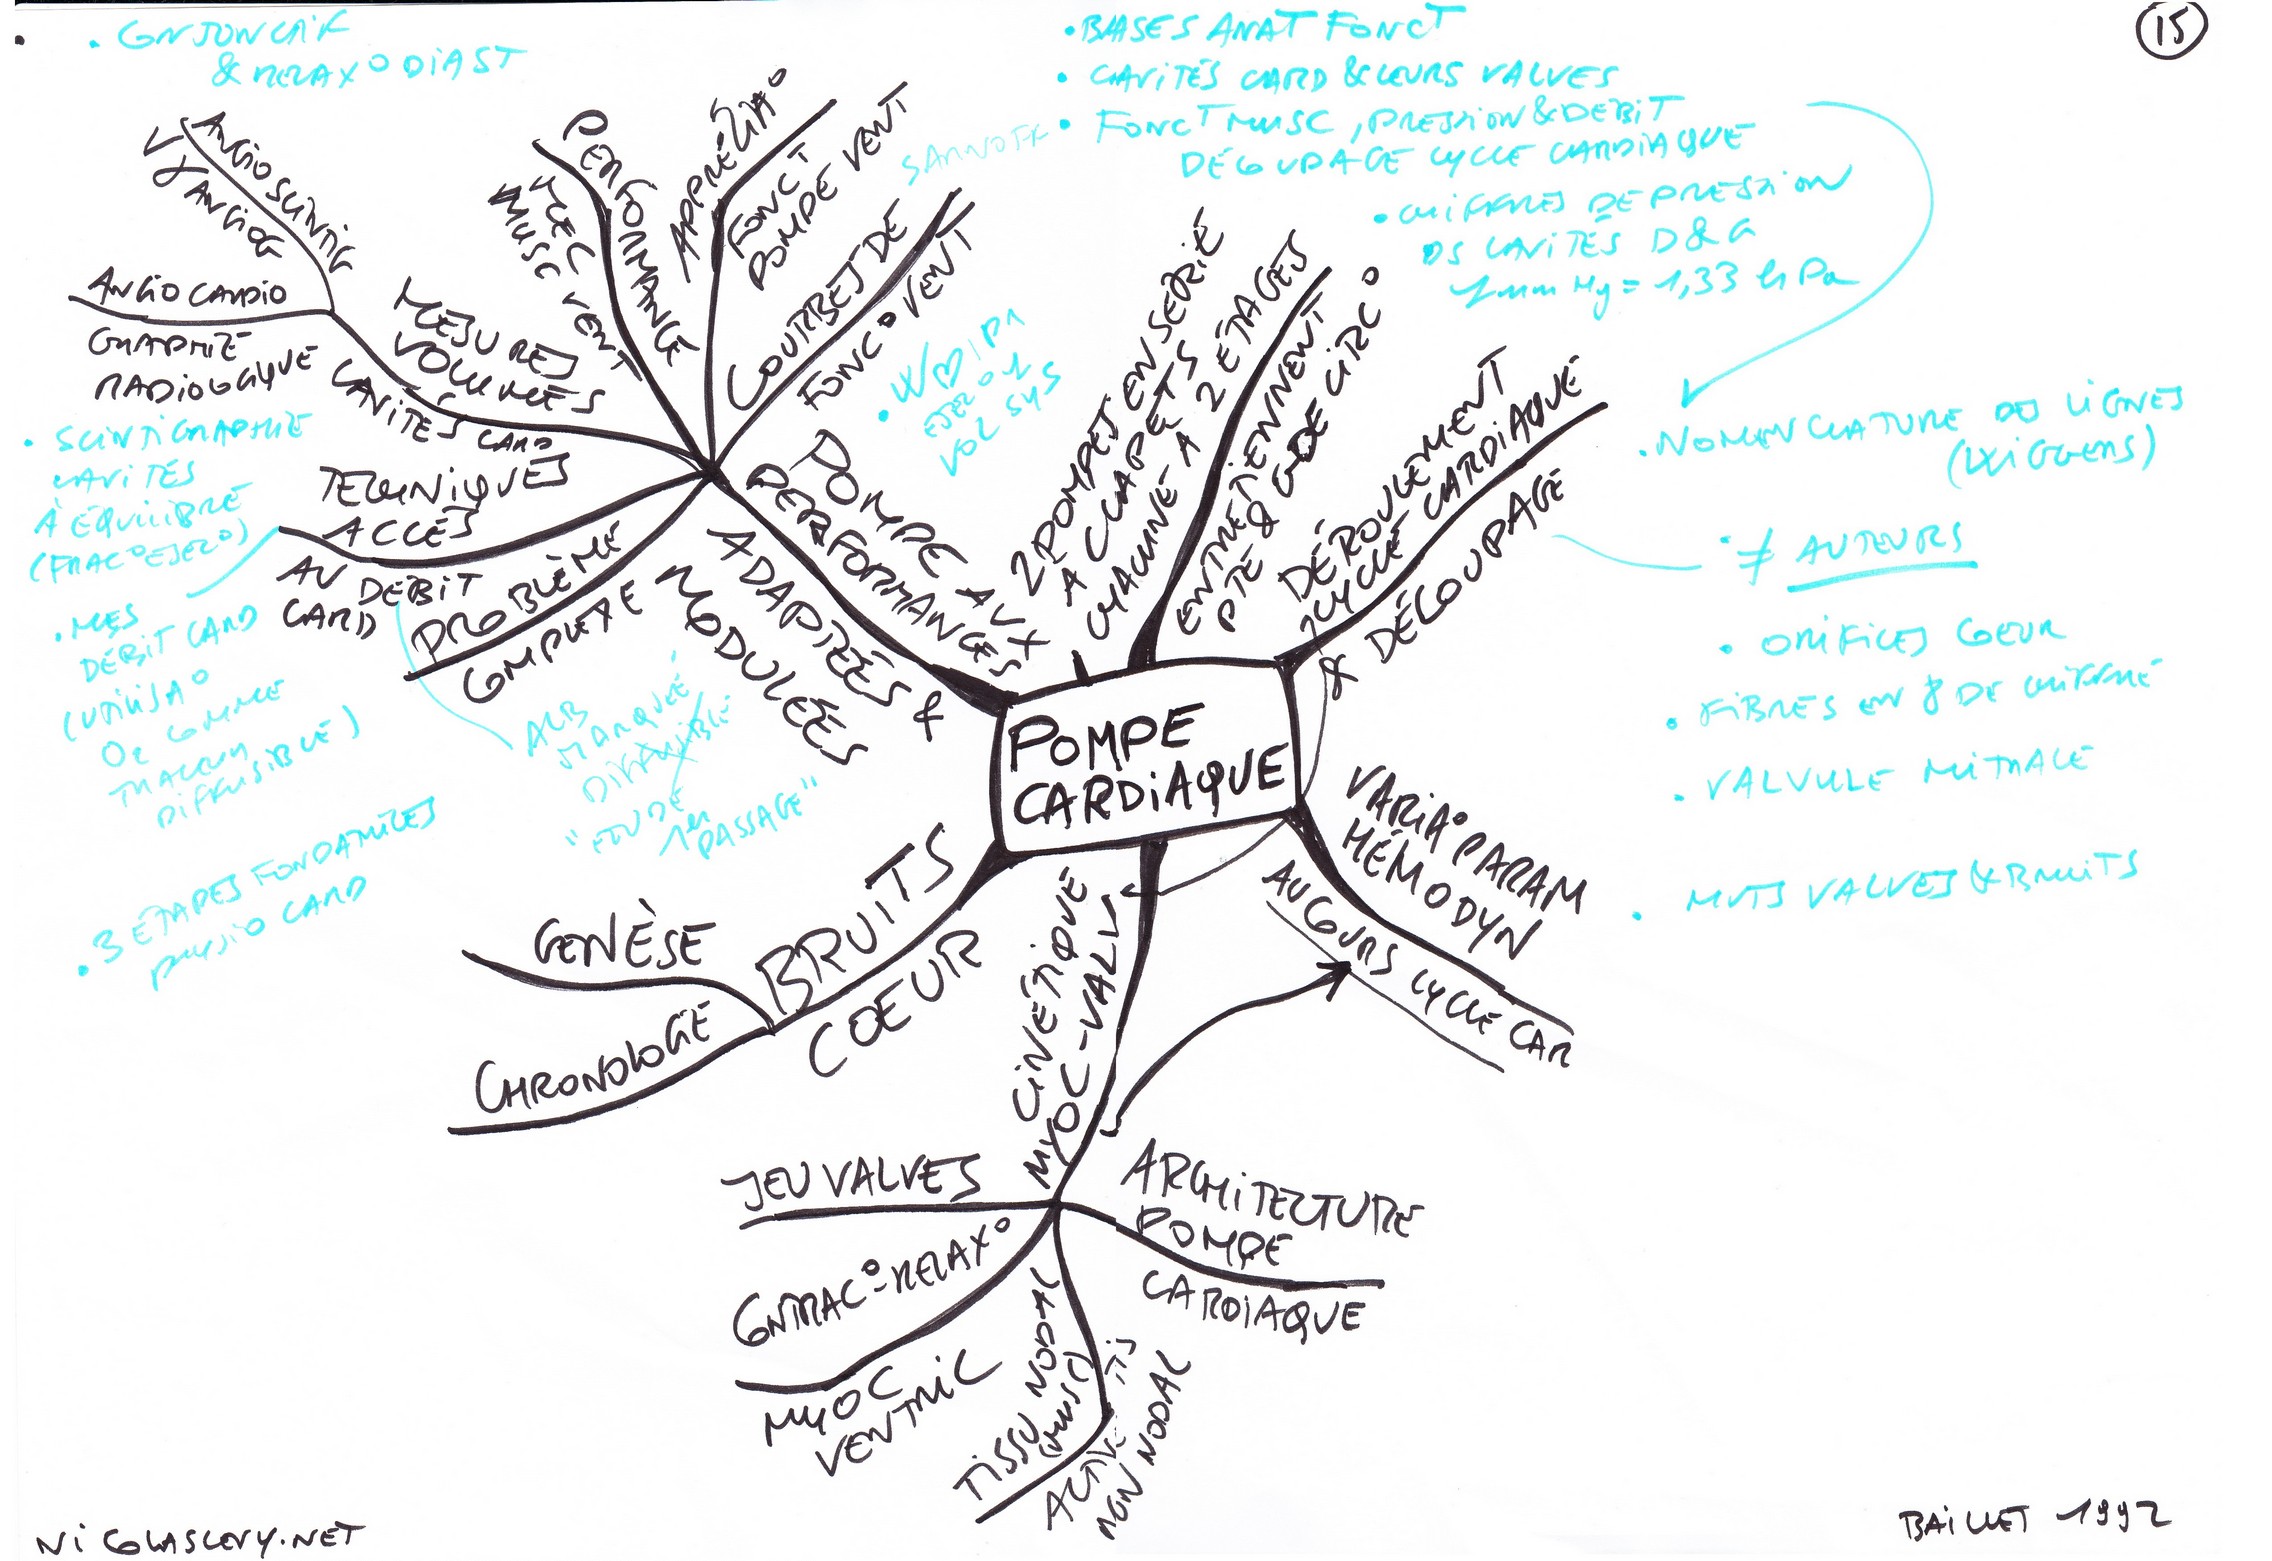 15
& RELAX° DIAST
• BASES ANAT FONCT
• CAVITÉS CARD & LEURS VALVES
• FONCT MUSC, PRESSION & DÉBIT
DÉCOUPAGE CYCLE CARDIAQUE
• CHIFFRES DE PRESSION
DS CAVITÉS D & G
1 mm Hg = 1,33 hPa
• NOMENCLATURE DES LIGNES
(WIGGERS)
• ≠ AUTEURS
• ORIFICES COEUR
• FIBRES EN 8 DE CHIFFRE
• VALVULE MITRALE
• MVTS VALVES & BRUITS
ANGIOSCINTIG
VX ANGIOG
ANGIOCARDIO
GRAPHIE
RADIOLOGIQUE
MESURES
VOLUMES
CAVITÉS CARD
PERFORMANCE
MEC
MUSC VENT
APPRÉCIA°
FONCT
POMPE VENT
COURBES DE
FONC° VENT
TECHNIQUES
ACCÈS
AU DÉBIT
CARD
PROBLÈME
COMPLEXE
POMPE AUX
PERFORMANCES
ADAPTÉES &
MODULÉES
2 POMPES EN SÉRIE
À CLAPETS
CHACUNE À 2 ÉTAGES
ENTRETIENNENT
PTE & GDE CIRC°
DÉROULEMENT
CYCLE CARDIAQUE
& DÉCOUPAGE
• SCINTIGRAPHIE
CAVITÉS
À ÉQUILIBRE
(FRAC° EJEC°)
• MES
DÉBIT CARD
(UTILISA°
O2 COMME
TRACEUR
DIFFUSIBLE)
ALB
MARQUÉE
DIFFUSIBLE
"ETUDE
1er
PASSAGE"
• 3 ÉTAPES FONDAMTLES
PHYSIO CARD
POMPE
CARDIAQUE
VARIA° PARAM
HÉMODYN
AU COURS CYCLE CAR
BRUITS
COEUR
GENÈSE
CHRONOLOGIE
CINÉTIQUE
MYOC-VALV
JEU VALVES
CONTRAC°-RELAX°
MYOC
VENTRIC
ARCHITECTURE
POMPE
CARDIAQUE
TISSU NODAL
(MUSC)
NON NODAL
NICOLASLEVY.NET
BAILLET 1992